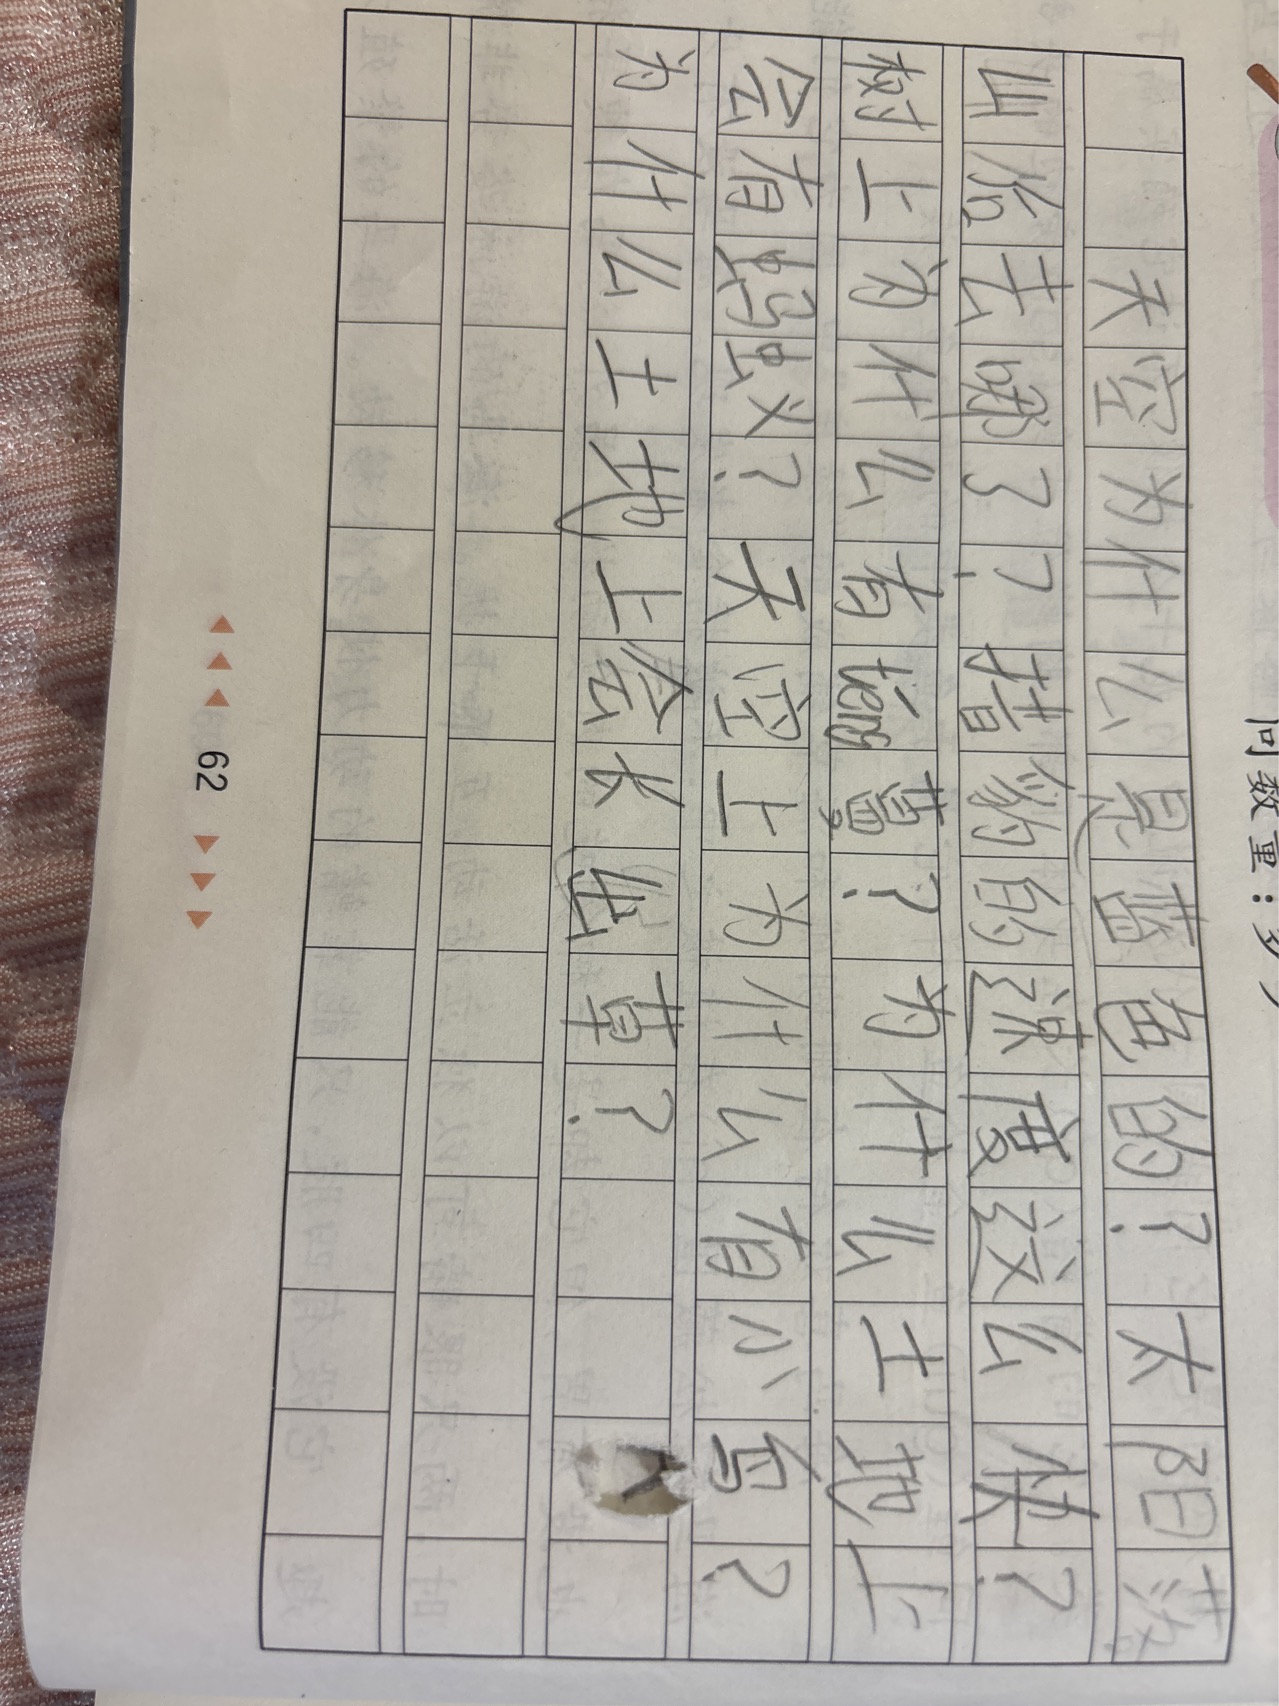 问数量：多
天空为什么是蓝色的？太阳落
山后去哪了？猎豹的速度这么快？
树上为什么有téng蔓？为什么土地上
会有蚂蚁？天空上为什么有小鸟？
为什么土地上会长出草？
62